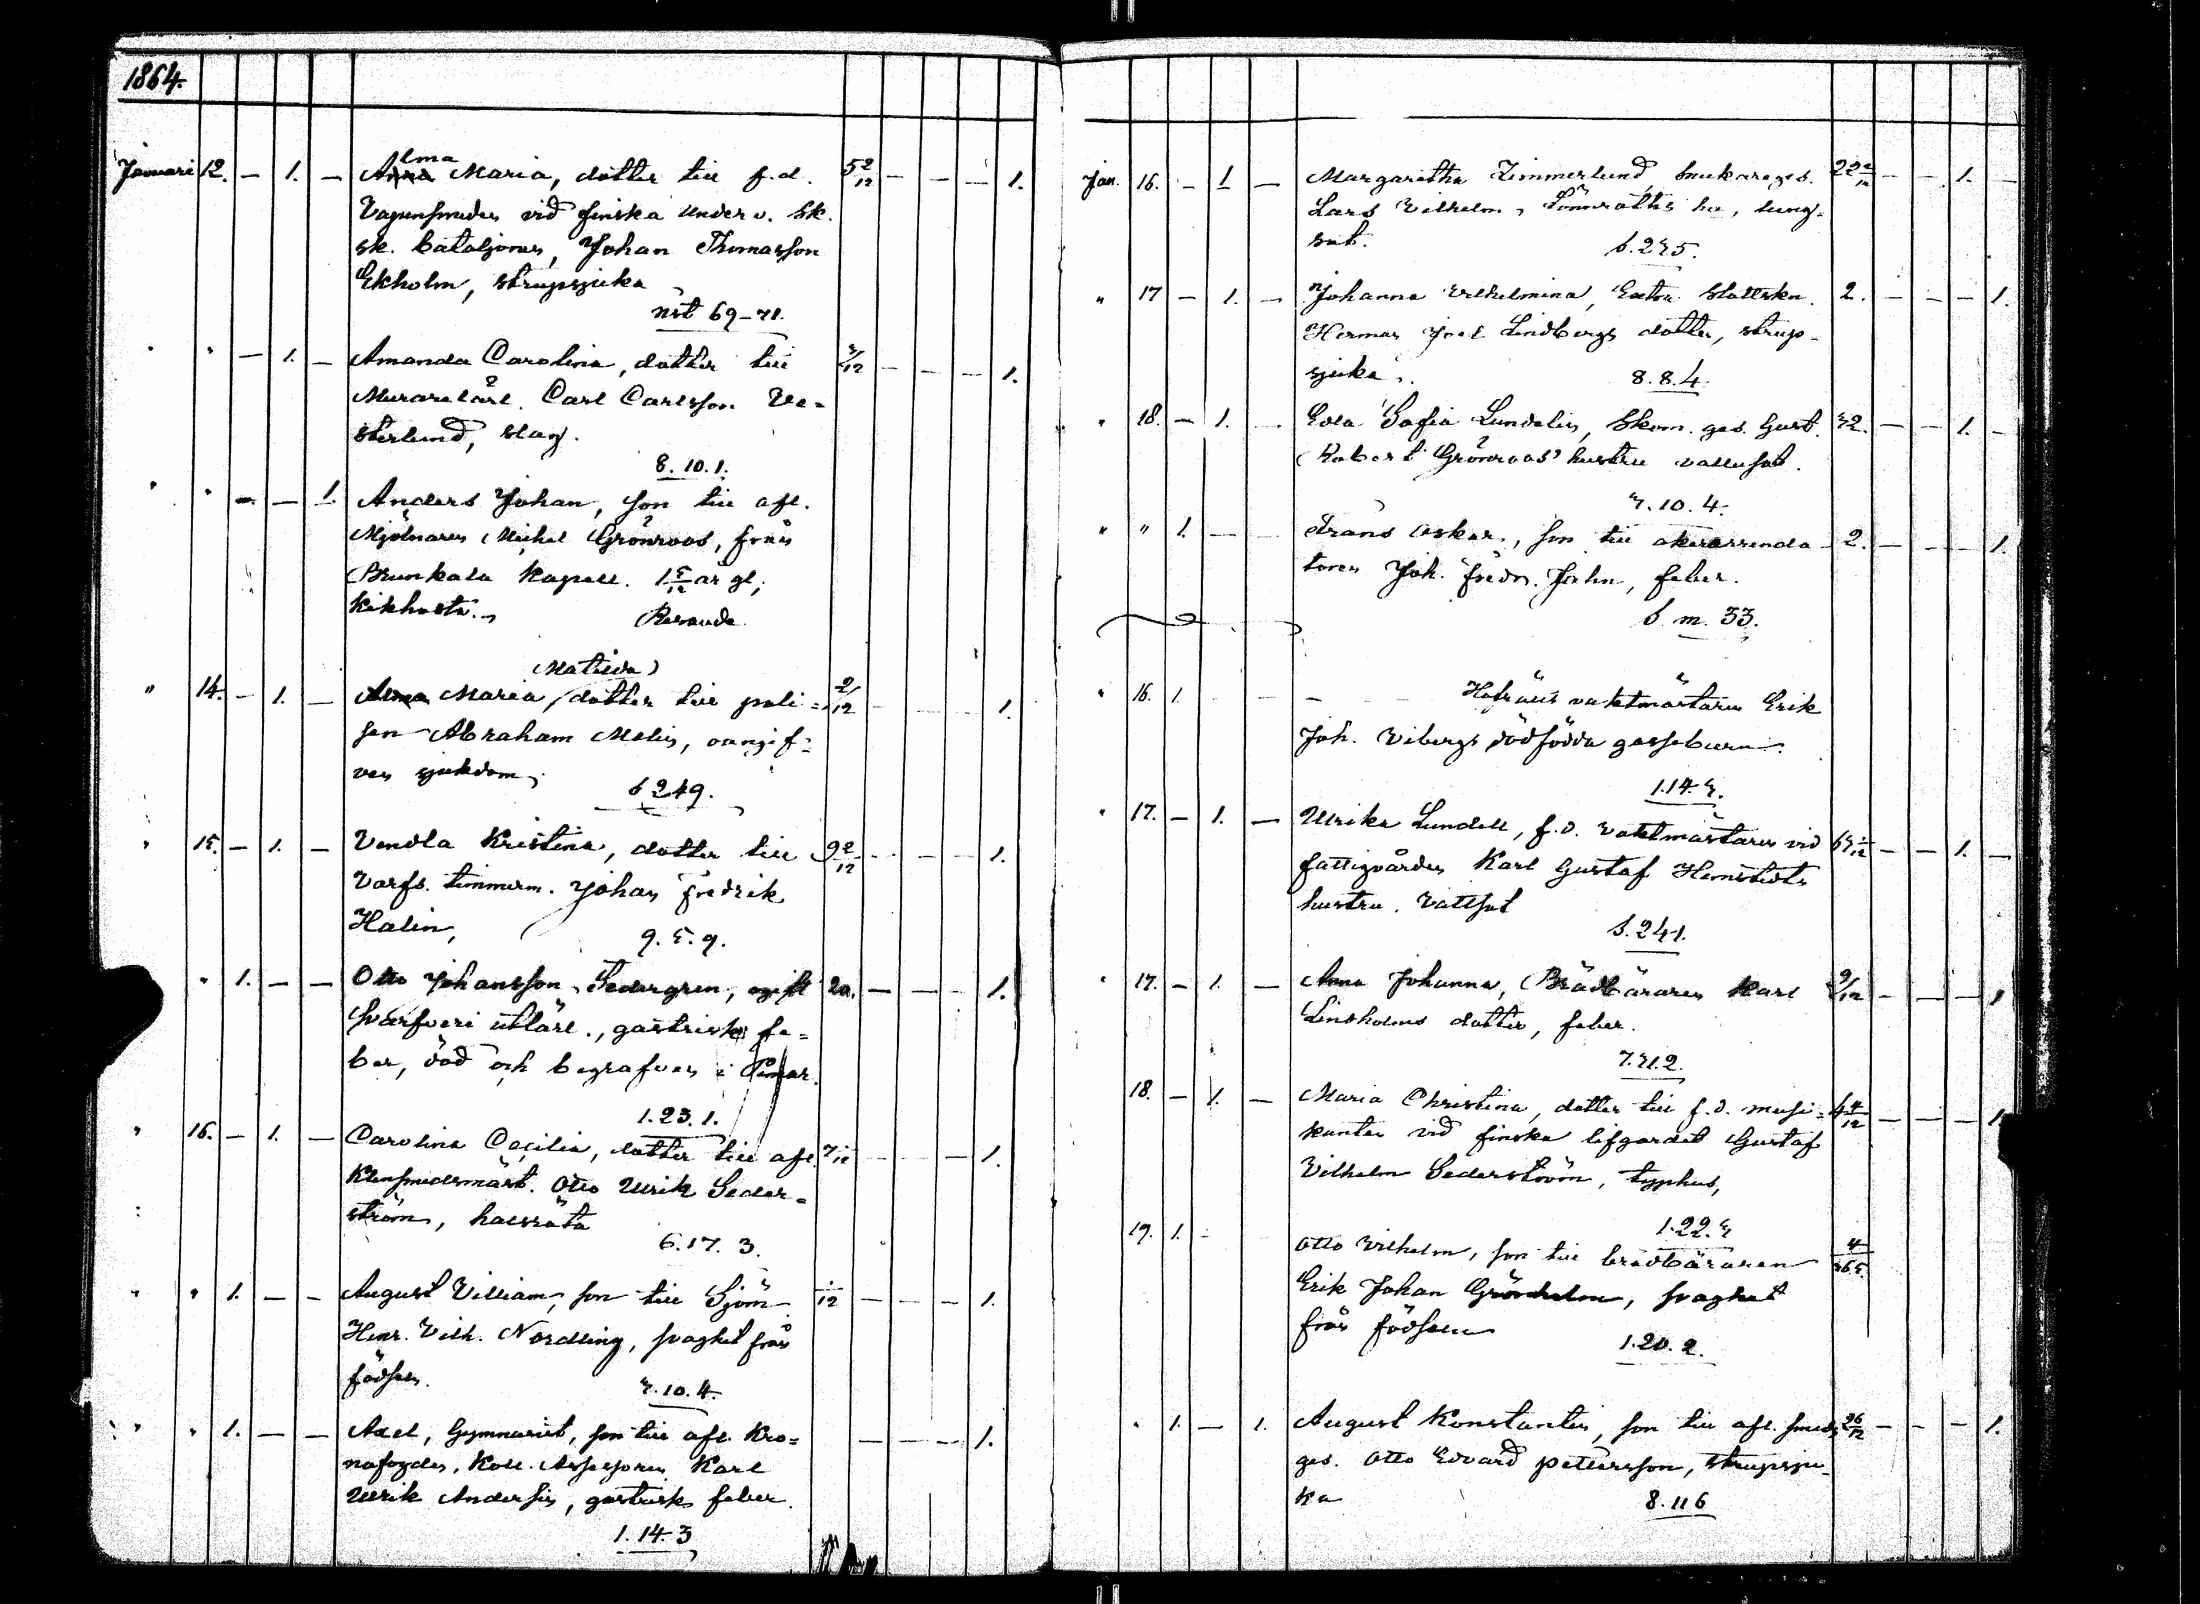 1864.
Januari 12. — 1. — Alma Maria, dotter till f.d. 5 2/12 — — — 1.
Vapensmeden vid finska underv. Sk.
sk. bataljonen, Johan Thomasson
Ekholm, strupsjuka
nst 69-71.
" " — 1. — Amanda Carolina, dotter till 3/12 — — — 1.
Murarelärl. Carl Carlsson Ve-
sterlund, slag.
8. 10. 1.
" " — — 1. Anders Johan, son till afl.
Mjölnaren Michel Grönroos, från
Brunkala Kapell. 1 5/12 år gl,
Kikhosta.
Resande
(Matilda)
" 14. — 1. — Alma Maria, dotter till poli- 2/12 — — — 1.
sen Abraham Melin, oangif-
ven sjukdom,
6 249.
" 15. — 1. — Vendla Kristina, dotter till 9 2/12 — — — 1.
Varfs. timmerm. Johan Fredrik
Halin,
9. 5. 9.
" 1. — — Otto Johansson Sedergren, ogift 20. — — — 1.
svarfveri utlärl., gastrisk fe-
ber, död och begrafven i Pemar.
1. 23. 1.
" 16. — 1. — Carolina Cecilia, dotter till afl. 7/12 — — — 1.
Klensmedsmäst. Otto Ulrik Seder-
ström, halsröta
6. 17. 3.
" " 1. — — August Villiam, son till Sjöm. 1/12 — — — 1.
Henr. Vilh. Nordling, svaghet från
födseln.
7. 10. 4.
" " 1. — — Axel, Gymnasist, son till afl. Kro- — — — 1.
nofogden, Koll. Assessoren Karl
Ulrik Andersin, gastrisk feber.
1. 14. 3
Jan. 16. — 1 — Margaretha Zimmerlund, snickareges. 22 2/12 — — 1. —
Lars Vilhelm Lönnroths hu, lung-
sot.
6. 275.
" 17 — 1. — Johanna Vilhelmina, Extra Slottskn. 2. — — — 1.
Herman Joel Lindbergs dotter, strup-
sjuka.
8. 8. 4.
" 18. — 1. — Eva Sofia Lundelin, Skom. ges. Gust. 72. — — 1. —
Robert Grönroos' hustru vattusot.
7. 10. 4.
" " 1. — — Frans Oskar, son till åkerarrenda- 2. — — — 1.
toren Joh. Fredr. Jahn, feber.
6. m. 33.
" 16. 1. — — Hofrätts vaktmästaren Erik
Joh. Vibergs dödfödda gossebarn.
1. 14. 7.
" 17. — 1. — Ulrika Lundell, f.d. vaktmästaren vid — — 1. —
fattigvården Karl Gustaf Hemstedts
hustru. Vattsot
6. 241.
" 17. — 1. — Anna Johanna, Brädbäraren Karl 9/12 — — — 1
Lindholms dotter, feber.
7. 71. 2.
18. — 1. — Maria Christina, dotter till f.d. musi- 4/12 — — — 1.
kanten vid finska lifgardet Gustaf
Vilhelm Sederström, typhus,
1. 22. 7
19. 1. — Otto Vilhelm, son till brädbäraren 4/365.
Erik Johan Grönholm, svaghet
från födseln
1. 20. 2.
" 1. — 1. August Konstantin, son till afl. smeds — — — 1.
ges. Otto Edvard Pettersson, strupsju-
ka
8. 116